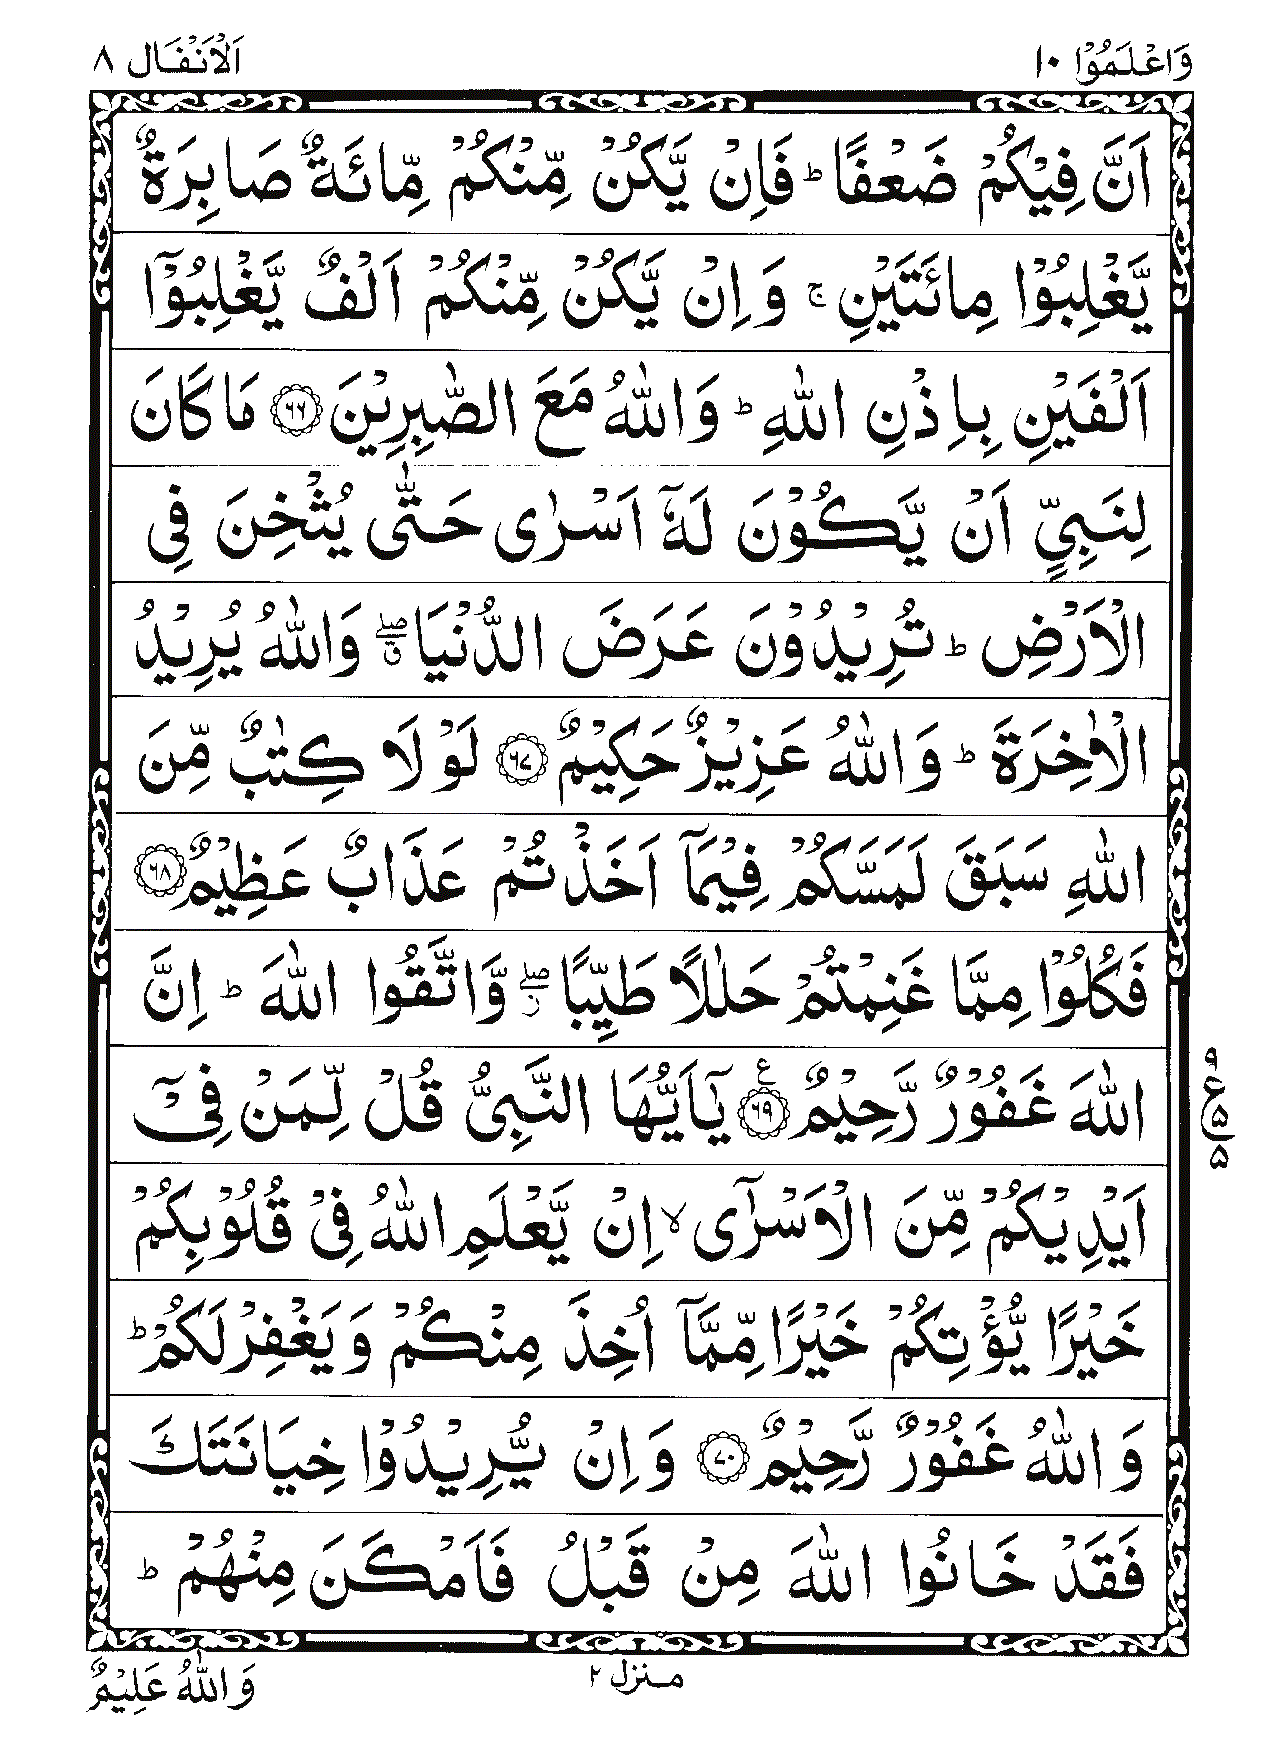 وَاعْلَمُوْٓا ١٠
اَلْاَنْفَال ٨
اَنَّ فِيْكُمْ ضَعْفًا ؕ فَاِنْ يَّكُنْ مِّنْكُمْ مِّائَةٌ صَابِرَةٌ
يَّغْلِبُوْا مِائَتَيْنِ ۚ وَاِنْ يَّكُنْ مِّنْكُمْ اَلْفٌ يَّغْلِبُوْٓا
اَلْفَيْنِ بِاِذْنِ اللّٰهِ ؕ وَاللّٰهُ مَعَ الصّٰبِرِيْنَ ﴿٦٦﴾ مَا كَانَ
لِنَبِيٍّ اَنْ يَّكُوْنَ لَهٗۤ اَسْرٰى حَتّٰى يُثْخِنَ فِى
الْاَرْضِ ؕ تُرِيْدُوْنَ عَرَضَ الدُّنْيَا ۖ ق وَاللّٰهُ يُرِيْدُ
الْاٰخِرَةَ ؕ وَاللّٰهُ عَزِيْزٌ حَكِيْمٌ ﴿٦٧﴾ لَوْ لَا كِتٰبٌ مِّنَ
اللّٰهِ سَبَقَ لَمَسَّكُمْ فِيْمَاۤ اَخَذْتُمْ عَذَابٌ عَظِيْمٌ ﴿٦٨﴾
فَكُلُوْا مِمَّا غَنِمْتُمْ حَلٰلًا طَيِّبًا ۖ ز وَّاتَّقُوا اللّٰهَ ؕ اِنَّ
اللّٰهَ غَفُوْرٌ رَّحِيْمٌ ﴿٦٩﴾ ع يٰۤاَيُّهَا النَّبِىُّ قُلْ لِّمَنْ فِىْۤ
اَيْدِيْكُمْ مِّنَ الْاَسْرٰٓى ۙ اِنْ يَّعْلَمِ اللّٰهُ فِىْ قُلُوْبِكُمْ
خَيْرًا يُّؤْتِكُمْ خَيْرًا مِّمَّاۤ اُخِذَ مِنْكُمْ وَيَغْفِرْ لَكُمْ ؕ
وَاللّٰهُ غَفُوْرٌ رَّحِيْمٌ ﴿٧٠﴾ وَاِنْ يُّرِيْدُوْا خِيَانَتَكَ
فَقَدْ خَانُوا اللّٰهَ مِنْ قَبْلُ فَاَمْكَنَ مِنْهُمْ ؕ
٩
ع
٥
٥
منزل ٢
وَاللّٰهُ عَلِيْمٌ